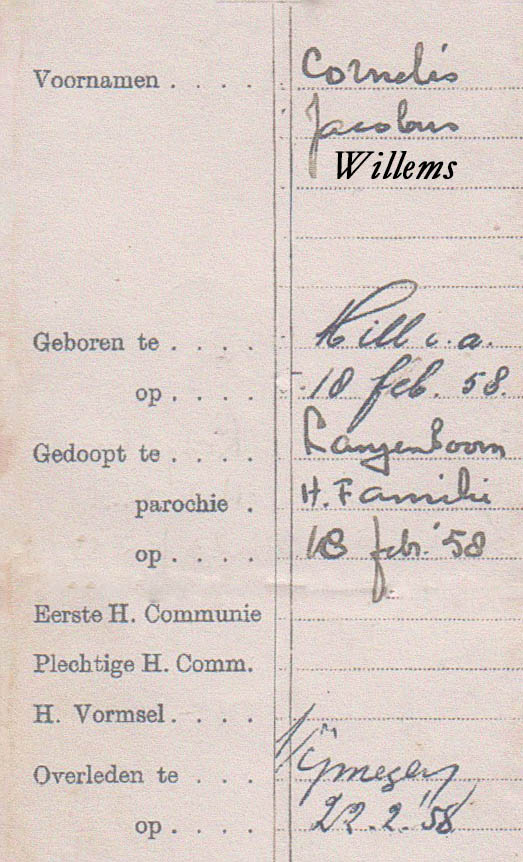 Voornamen . . . . Cornelis
Jacobus
Willems
Geboren te . . . . Mill c.a.
op . . . . 18 feb. 58.
Gedoopt te . . . . Langenboom
parochie . H. Familie
op . . . . 18 febr. '58
Eerste H. Communie
Plechtige H. Comm.
H. Vormsel . . . .
Overleden te . . . Nijmegen
op . . . . 22.2.'58